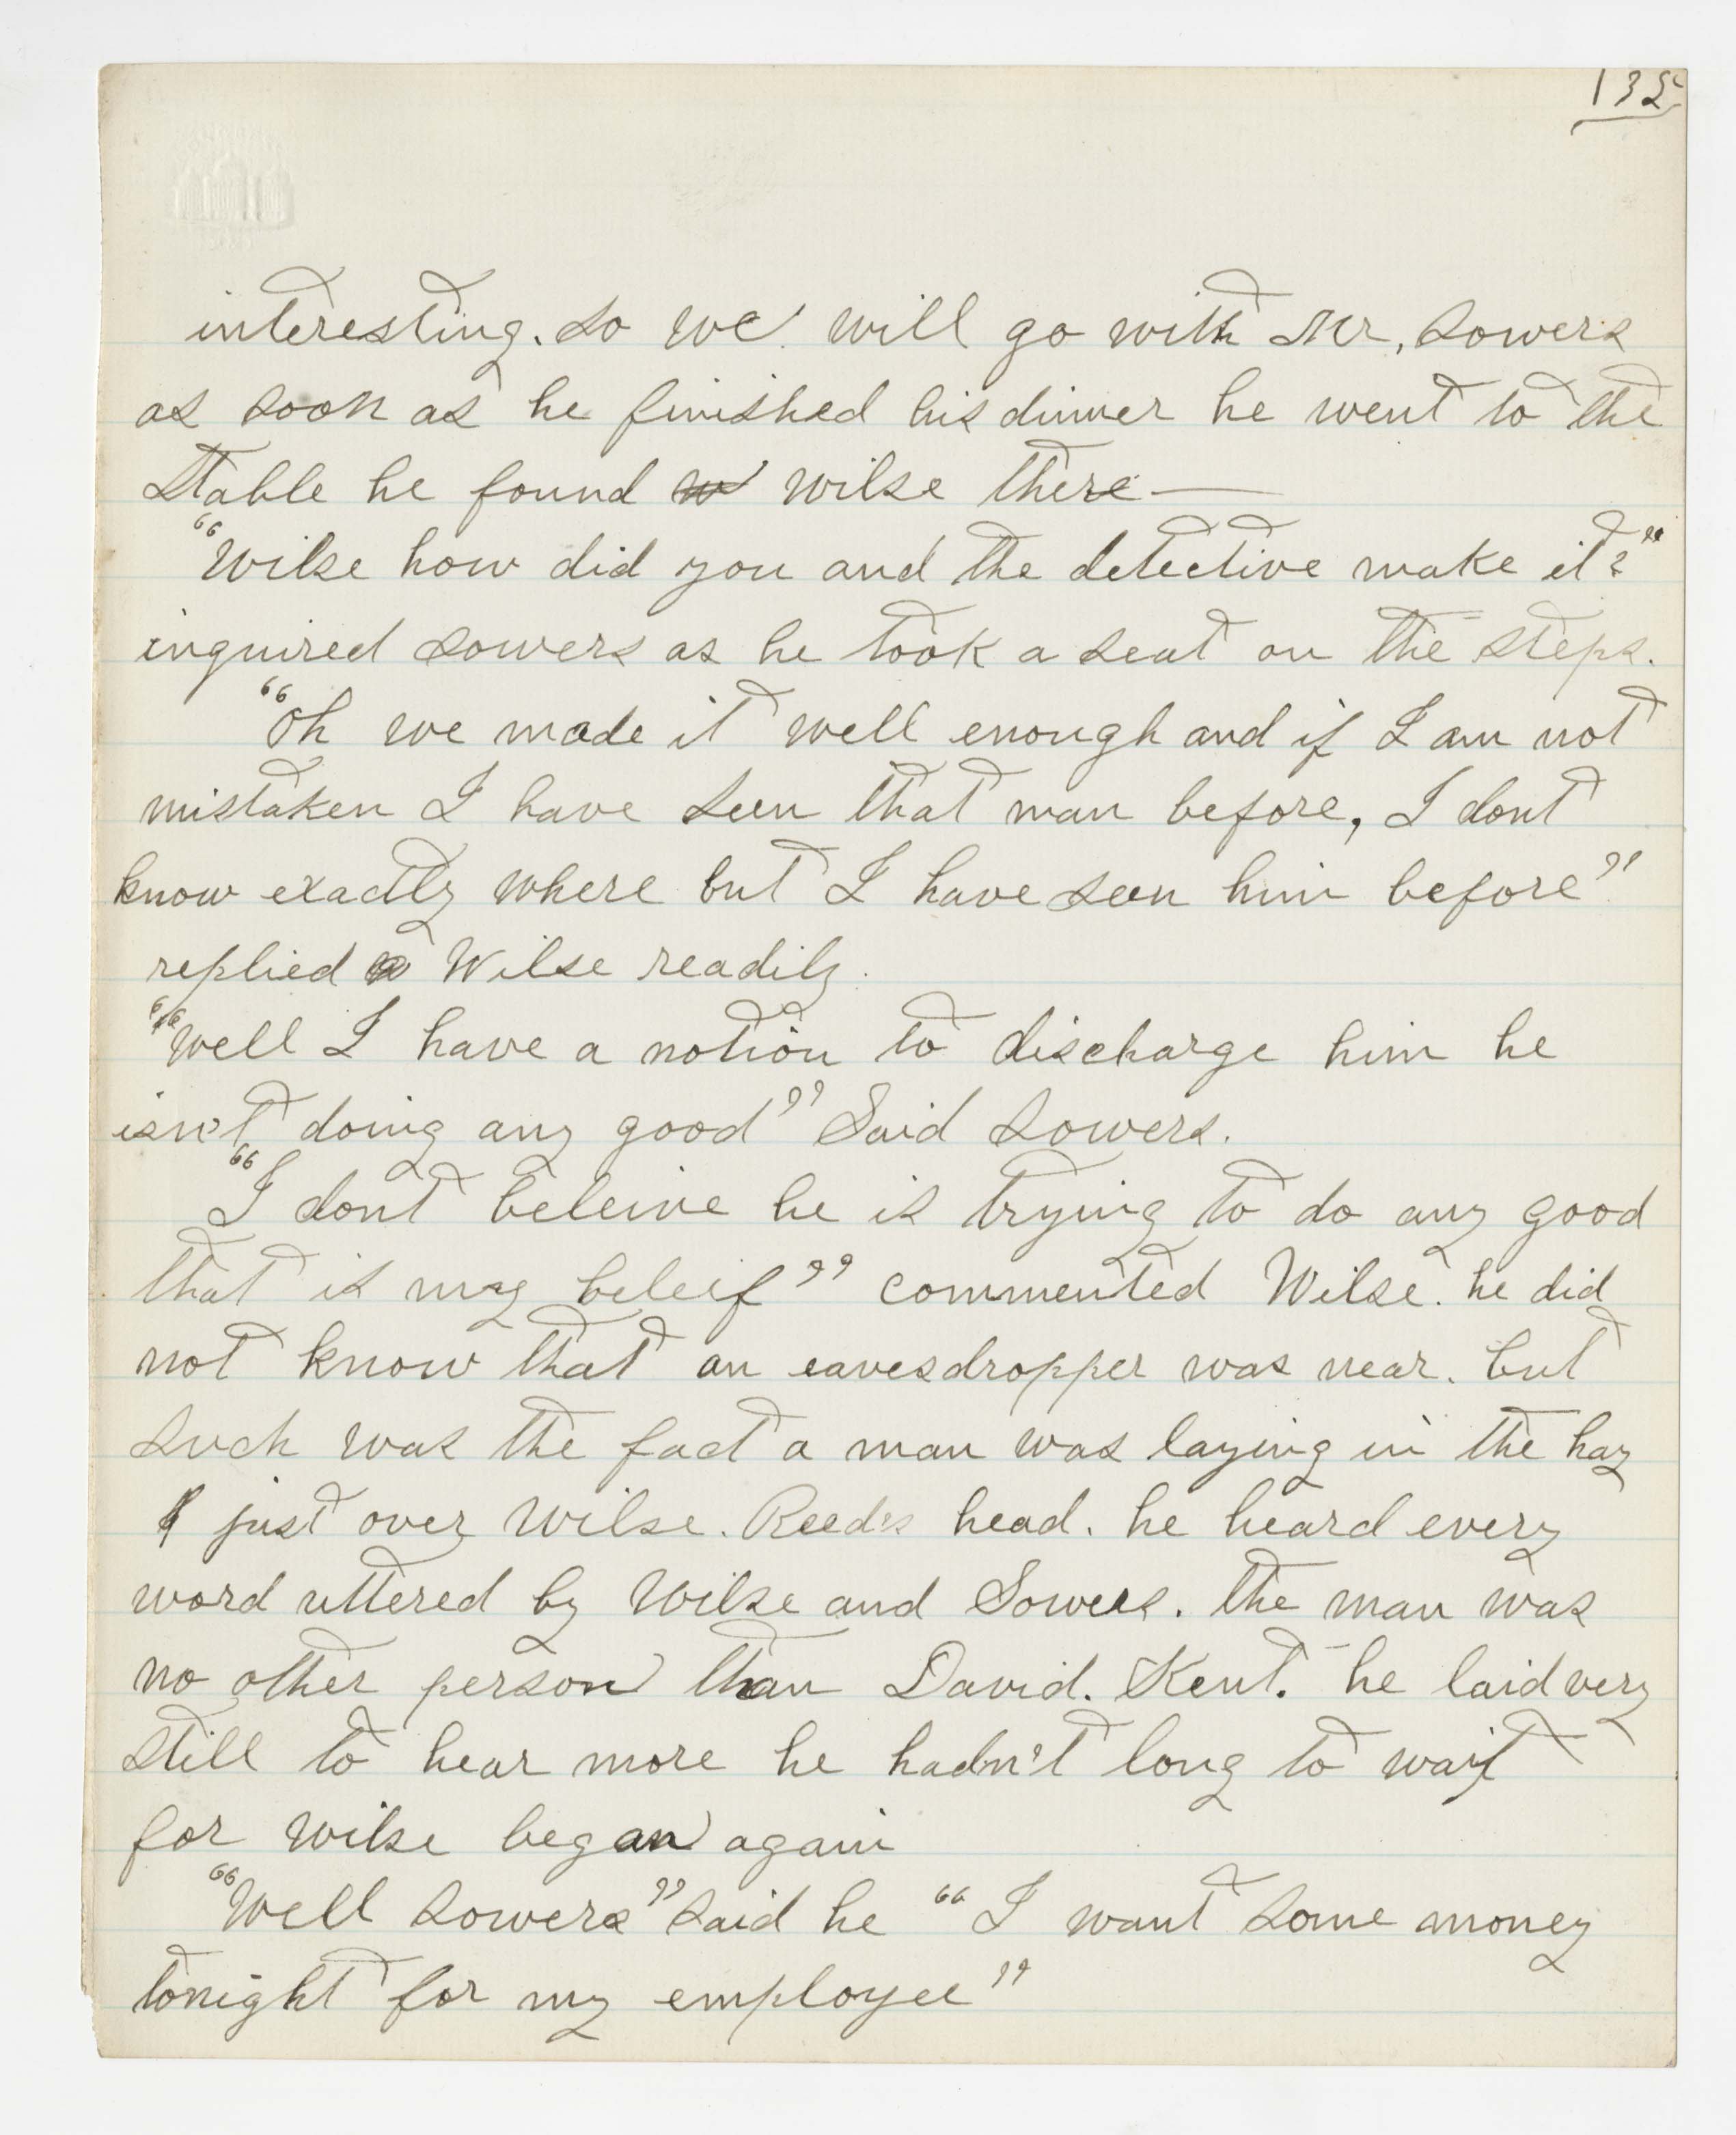 135
interesting. So we will go with Mr, Sowers
as soon as he finished his dinner he went to the
Stable he found w wilse there —
"Wilse how did you and the detective make it?"
inquired Sowers as he took a seat on the steps.
"Oh we made it well enough and if I am not
mistaken I have seen that man before, I dont
know exactly where but I have seen him before"
replied Wilse readily.
"Well I have a notion to discharge him he
isn't doing any good" Said Sowers.
"I dont beleive he is trying to do any good
that is my beleif" commented Wilse. he did
not know that an eavesdropper was near. but
such was the fact a man was laying in the hay
just over Wilse. Reed's head. he heard every
word uttered by Wilse and Sowers. the man was
no other person than David. Kent. he laid very
still to hear more he hadn't long to wait
for wilse began again
"Well Sowers" said he "I want some money
tonight for my employee"